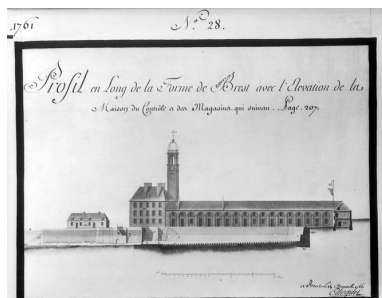 1761
N.º 28.
Profil en Long de la Forme de Brest avec l'Elevation de la
Maison du Controle et des Magasins qui suivent. Page. 207.
a Brest le